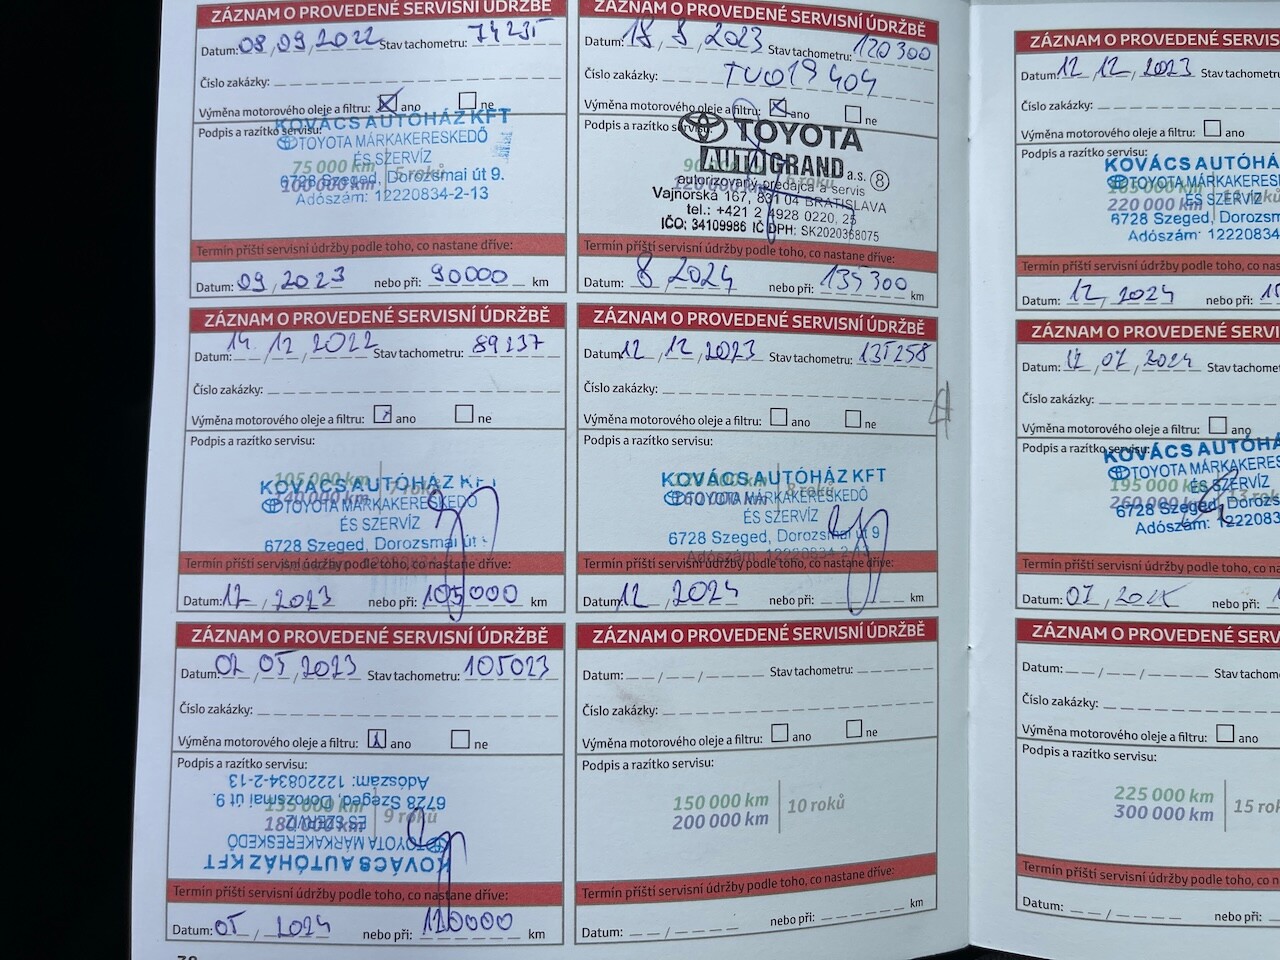 ZÁZNAM O PROVEDENÉ SERVISNÍ ÚDRŽBĚ
Datum: 08, 09, 2022 Stav tachometru: 74 235
Číslo zakázky:
Výměna motorového oleje a filtru: ano ne
Podpis a razítko servisu:
KOVÁCS AUTÓHÁZ KFT
TOYOTA MÁRKAKERESKEDŐ
ÉS SZERVÍZ
75 000 km
100 000 km
5 roků
6728 Szeged, Dorozsmai út 9.
Adószám: 12220834-2-13
Termín příští servisní údržby podle toho, co nastane dříve:
Datum: 09, 2023 nebo při: 90000 km
ZÁZNAM O PROVEDENÉ SERVISNÍ ÚDRŽBĚ
Datum: 14, 12, 2022 Stav tachometru: 89237
Číslo zakázky:
Výměna motorového oleje a filtru: ano ne
Podpis a razítko servisu:
105 000 km
140 000 km
7 roků
KOVÁCS AUTÓHÁZ KFT
TOYOTA MÁRKAKERESKEDŐ
ÉS SZERVÍZ
6728 Szeged, Dorozsmai út
Termín příští servisní údržby podle toho, co nastane dříve:
Datum: 12, 2023 nebo při: 105000 km
ZÁZNAM O PROVEDENÉ SERVISNÍ ÚDRŽBĚ
Datum: 02, 05, 2023 Stav tachometru: 105023
Číslo zakázky:
Výměna motorového oleje a filtru: ano ne
Podpis a razítko servisu:
135 000 km
180 000 km
9 roků
KOVÁCS AUTÓHÁZ KFT
TOYOTA MÁRKAKERESKEDŐ
ÉS SZERVÍZ
6728 Szeged, Dorozsmai út 9.
Adószám: 12220834-2-13
Termín příští servisní údržby podle toho, co nastane dříve:
Datum: 05, 2024 nebo při: 120000 km
ZÁZNAM O PROVEDENÉ SERVISNÍ ÚDRŽBĚ
Datum: 18, 8, 2023 Stav tachometru: 120 300
Číslo zakázky: TUO19404
Výměna motorového oleje a filtru: ano ne
Podpis a razítko servisu:
TOYOTA
AUTOGRAND a.s. 8
90 000 km
120 000 km
6 roků
autorizovaný predajca a servis
Vajnorská 167, 831 04 BRATISLAVA
tel.: +421 2 4928 0220, 25
IČO: 34109986 IČ DPH: SK2020368075
Termín příští servisní údržby podle toho, co nastane dříve:
Datum: 8, 2024 nebo při: 135 300 km
ZÁZNAM O PROVEDENÉ SERVISNÍ ÚDRŽBĚ
Datum: 12, 12, 2023 Stav tachometru: 135258
Číslo zakázky:
Výměna motorového oleje a filtru: ano ne
Podpis a razítko servisu:
8 roků
KOVÁCS AUTÓHÁZ KFT
TOYOTA MÁRKAKERESKEDŐ
ÉS SZERVÍZ
6728 Szeged, Dorozsmai út 9
Adószám: 12220834-2-13
Termín příští servisní údržby podle toho, co nastane dříve:
Datum: 12, 2024 nebo při: km
ZÁZNAM O PROVEDENÉ SERVISNÍ ÚDRŽBĚ
Datum: Stav tachometru:
Číslo zakázky:
Výměna motorového oleje a filtru: ano ne
Podpis a razítko servisu:
150 000 km
200 000 km
10 roků
Termín příští servisní údržby podle toho, co nastane dříve:
Datum: nebo při: km
ZÁZNAM O PROVEDENÉ SERVIS
Datum: 12, 12, 2023 Stav tachome
Číslo zakázky:
Výměna motorového oleje a filtru: ano
Podpis a razítko servisu:
KOVÁCS AUTÓHÁ
TOYOTA MÁRKAKERES
165 000 km
ÉS SZERVÍZ
220 000 km
11 roků
6728 Szeged, Dorozs
Adószám: 12220
Termín příští servisní údržby podle toho, co nas
Datum: 12, 2024 nebo při:
ZÁZNAM O PROVEDENÉ SERVISNÍ
Datum: 12, 07, 2024 Stav tachome
Číslo zakázky:
Výměna motorového oleje a filtru: ano
Podpis a razítko servisu:
KOVÁCS AUTÓH
TOYOTA MÁRKAKERES
195 000 km
ÉS SZERVÍZ
260 000 km
13 roků
6728 Szeged, Dorozs
Adószám: 122208
Termín příští servisní údržby podle toho, co na
Datum: 07, 2025 nebo při:
ZÁZNAM O PROVEDENÉ SERVISN
Datum: Stav tachom
Číslo zakázky:
Výměna motorového oleje a filtru: ano
Podpis a razítko servisu:
225 000 km
300 000 km
15 roků
Termín příští servisní údržby podle toho, co n
Datum: nebo při: